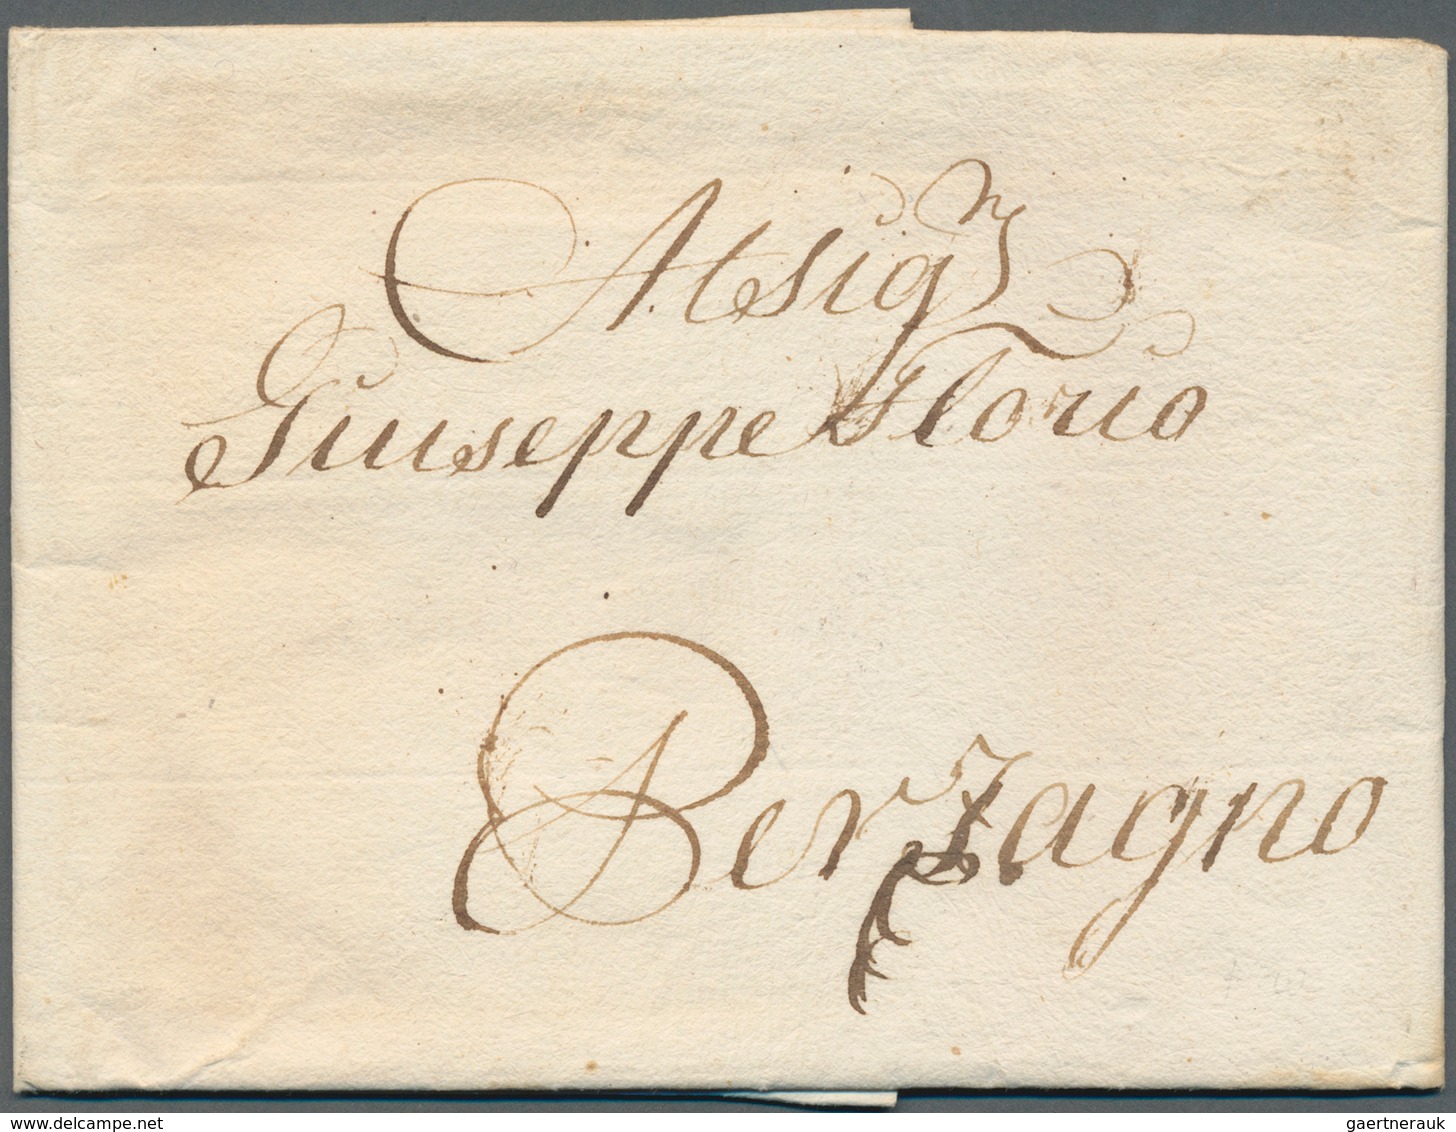 Al sig.r
Giuseppe Florio
Berzagno
gaertnerauk / delcampe.net